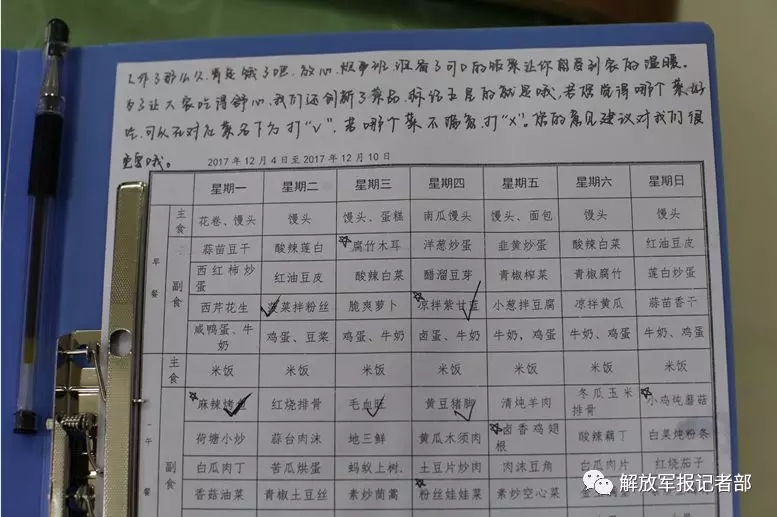 工作了那么久,肯定饿了吧,放心,炊事班准备了可口的饭菜让你能感受到家的温暖。
为了让大家吃得舒心,我们还创新了菜品,标注五星的就是哦,若你觉得哪个菜好
吃,可以在对应菜名下方打“√”,若哪个菜不满意,打“×”。您的意见建议对我们很
重要哦。
2017年12月4日至2017年12月10日
星期一 星期二 星期三 星期四 星期五 星期六 星期日
早餐
主食 花卷、馒头 馒头 馒头、蛋糕 南瓜馒头 馒头、面包 馒头 馒头
副食
蒜苗豆干 酸辣莲白 ☆腐竹木耳 洋葱炒蛋 韭黄炒蛋 酸辣白菜 红油豆皮
西红柿炒蛋 红油豆皮 酸辣白菜 醋溜豆芽 青椒榨菜 青椒腐竹 莲白炒蛋
西芹花生 菠菜拌粉丝 脆爽萝卜 ☆凉拌紫甘蓝 小葱拌豆腐 凉拌黄瓜 蒜苗香干
咸鸭蛋、牛奶 鸡蛋、豆浆 鸡蛋、牛奶 卤蛋、牛奶 牛奶,鸡蛋 牛奶、鸡蛋 牛奶、鸡蛋
午
主食 米饭 米饭 米饭 米饭 米饭 米饭 米饭
副食
☆麻辣烤鱼 红烧排骨 毛血旺 黄豆猪脚 清炖羊肉 冬瓜玉米排骨 ☆小鸡炖蘑菇
荷塘小炒 蒜台肉沫 地三鲜 黄瓜木须肉 ☆卤香鸡翅根 酸辣藕丁 白菜炖粉条
白瓜肉丁 苦瓜烘蛋 蚂蚁上树. 土豆片炒肉 肉沫豆角 白瓜肉片 红烧茄子
香菇油菜 青椒土豆丝 素炒茼蒿 ☆粉丝娃娃菜 素炒空心菜
解放军报记者部